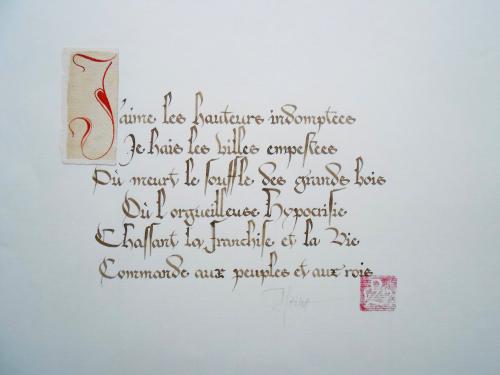 J'aime les hauteurs indomptées
Je hais les villes empestées
Où meurt le souffle des grands bois
Où l'orgueilleuse Hypocrisie
Chassant la franchise et la Vie
Commande aux peuples et aux rois